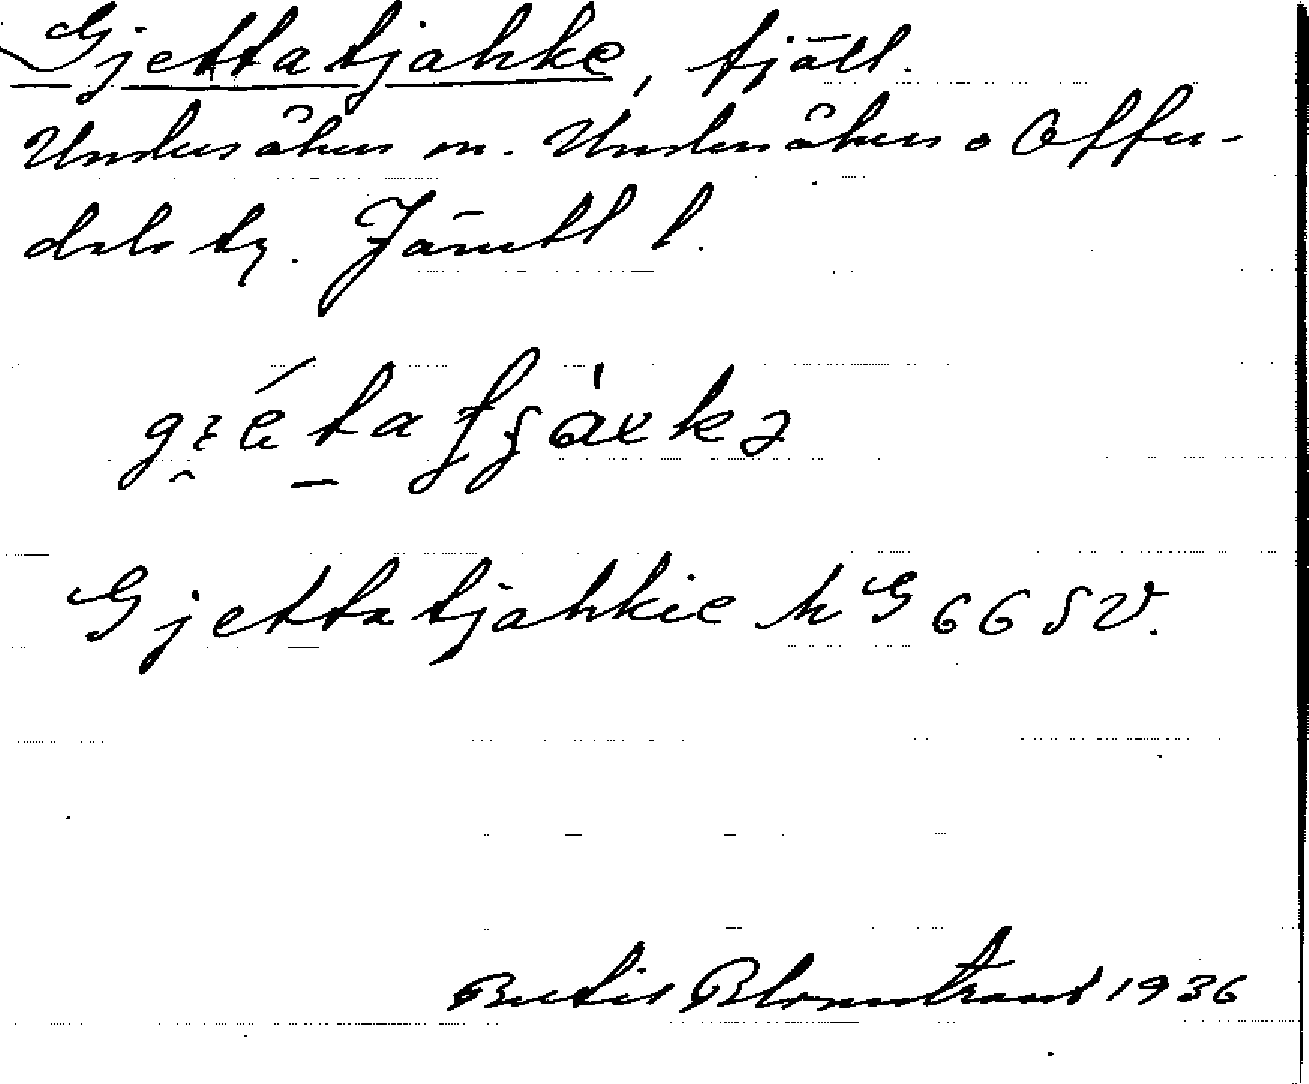 Gjettatjahke, fjäll.
Undersåkers sn. Undersåkers o Offer-
dals tg. Jämtl l.
Gjettatjahkie kG 66 SV.
Bertil Blomstrand 1936